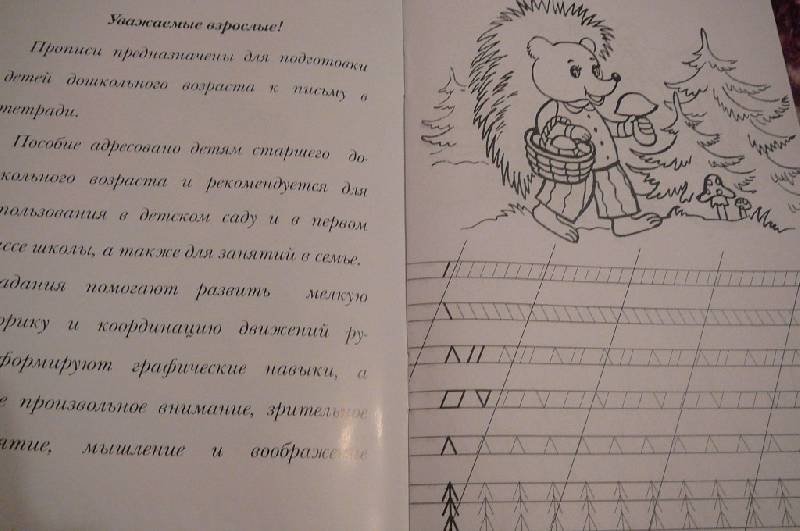 Уважаемые взрослые!
Прописи предназначены для подготовки
детей дошкольного возраста к письму в
тетради.
Пособие адресовано детям старшего до-
кольного возраста и рекомендуется для
пользования в детском саду и в первом
ссе школы, а также для занятий в семье.
адания помогают развить мелкую
орику и координацию движений ру-
формируют графические навыки, а
е произвольное внимание, зрительное
ятие, мышление и воображение